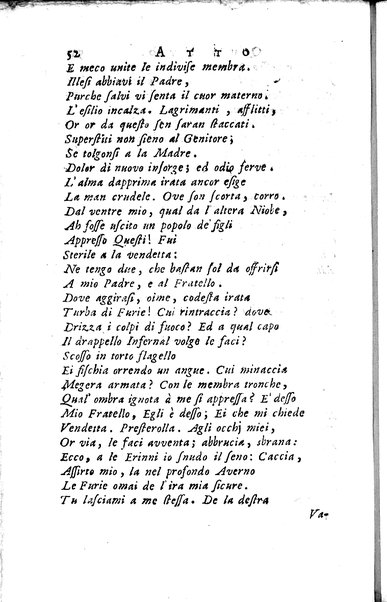 52 ATTO
E meco unite le indiviſe membra.
Illeſi abbiavi il Padre,
Purche ſalvi vi ſenta il cuor materno.
L'eſilio incalza. Lagrimanti, afflitti,
Or or da queſto ſen ſaran ſtaccati.
Superſtiti non ſieno al Genitore;
Se tolgonſi a la Madre.
Dolor di nuovo inſorge; ed odio ferve.
L'alma dapprima irata ancor eſige
La man crudele. Ove ſon ſcorta, corro.
Dal ventre mio, qual da l'altera Niobe,
Ah foſſe uſcito un popolo de' figli
Appreſſo Queſti! Fui
Sterile a la vendetta:
Ne tengo due, che baſtan ſol da offrirſi
A mio Padre, e al Fratello.
Dove aggiraſi, oime, codeſta irata
Turba di Furie! Cui rintraccia? dove
Drizza i colpi di fuoco? Ed a qual capo
Il drappello Infernal volge le faci?
Scoſſo in torto flagello
Ei fiſchia orrendo un angue. Cui minaccia
Megera armata? Con le membra tronche,
Qual' ombra ignota à me ſi appreſſa? E' deſſo
Mio Fratello, Egli è deſſo; Ei che mi chiede
Vendetta. Preſterolla. Agli occhj miei,
Or via, le faci avventa; abbrucia, sbrana:
Ecco, a le Erinni io ſnudo il ſeno: Caccia,
Aſſirto mio, la nel profondo Averno
Le Furie omai de l'ira mia ſicure.
Tu laſciami a me ſteſſa. De la deſtra
Va-